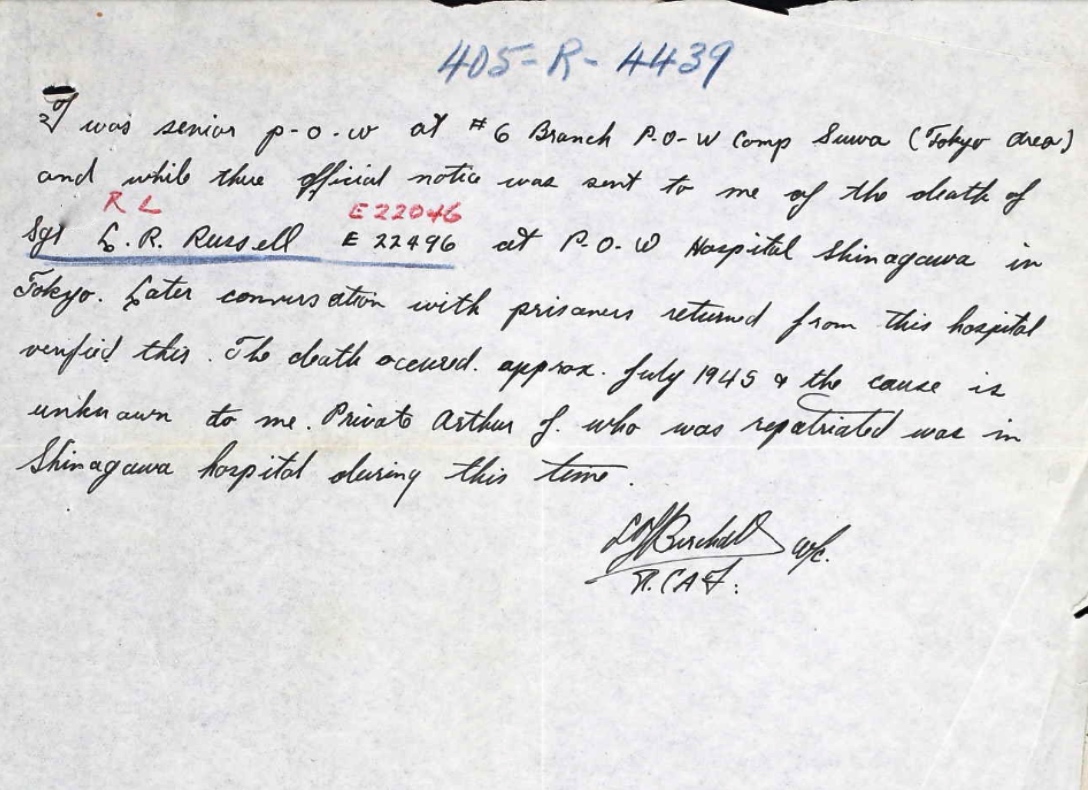 405-R-4439
I was senior p-o-w at #6 Branch P.O-W Camp Suwa (Tokyo area)
and while there official notice was sent to me of the death of
R L E 22046
Sgt L. R. Russell E 22496 at P.O.W Hospital Shinagawa in
Tokyo. Later conversation with prisoners returned from this hospital
verified this. The death occured. approx. July 1945 & the cause is
unknown to me. Private Arthur J. who was repatriated was in
Shinagawa hospital during this time.
LJBirchall W/C.
R.C.A.F.